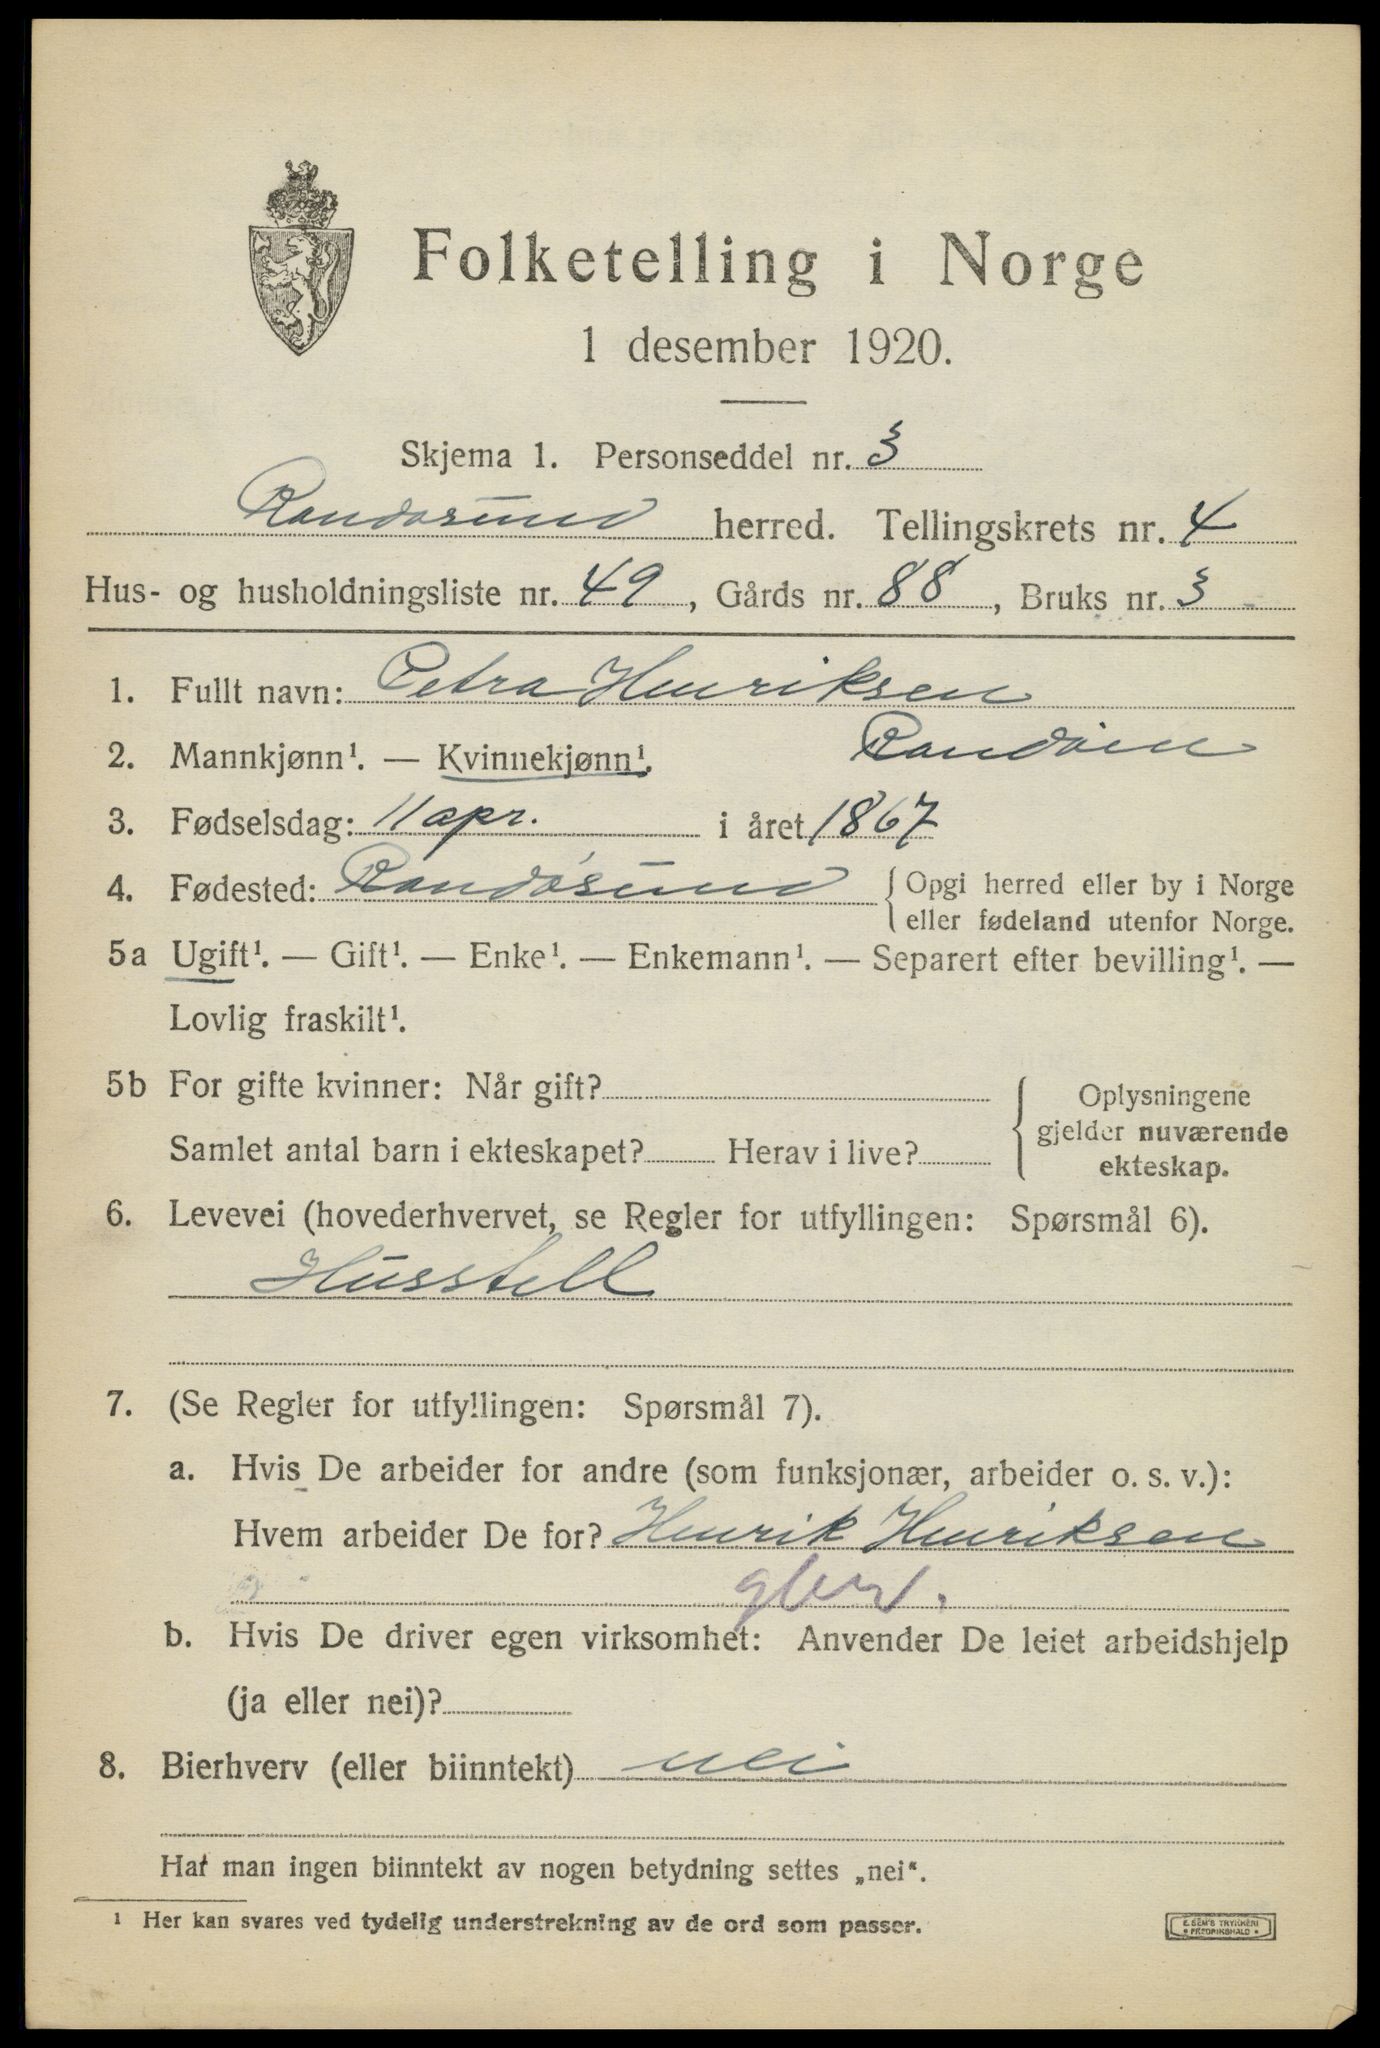 Folketelling i Norge
1 desember 1920.
Skjema 1. Personseddel nr. 3
Randøsund herred. Tellingskrets nr. 4
Hus- og husholdningsliste nr. 49, Gårds nr. 88, Bruks nr. 3
1. Fullt navn: Petra Henriksen
Randøen
2. Mannkjønn¹. — Kvinnekjønn¹.
3. Fødselsdag: 11 apr. i året 1867
4. Fødested: Randøsund { Opgi herred eller by i Norge
eller fødeland utenfor Norge.
5a Ugift¹. — Gift¹. — Enke¹. — Enkemann¹. — Separert efter bevilling¹. —
Lovlig fraskilt¹.
5b For gifte kvinner: Når gift?
Samlet antal barn i ekteskapet? Herav i live?
Oplysningene
gjelder nuværende
ekteskap.
6. Levevei (hovederhvervet, se Regler for utfyllingen: Spørsmål 6).
Husstell
7. (Se Regler for utfyllingen: Spørsmål 7).
a. Hvis De arbeider for andre (som funksjonær, arbeider o. s. v.):
Hvem arbeider De for? Henrik Henriksen
b. Hvis De driver egen virksomhet: Anvender De leiet arbeidshjelp
(ja eller nei)?
8. Bierhverv (eller biinntekt) nei
Har man ingen biinntekt av nogen betydning settes „nei“.
¹ Her kan svares ved tydelig understrekning av de ord som passer.
E. SEM'S TRYKKERI
FREDRIKSHALD